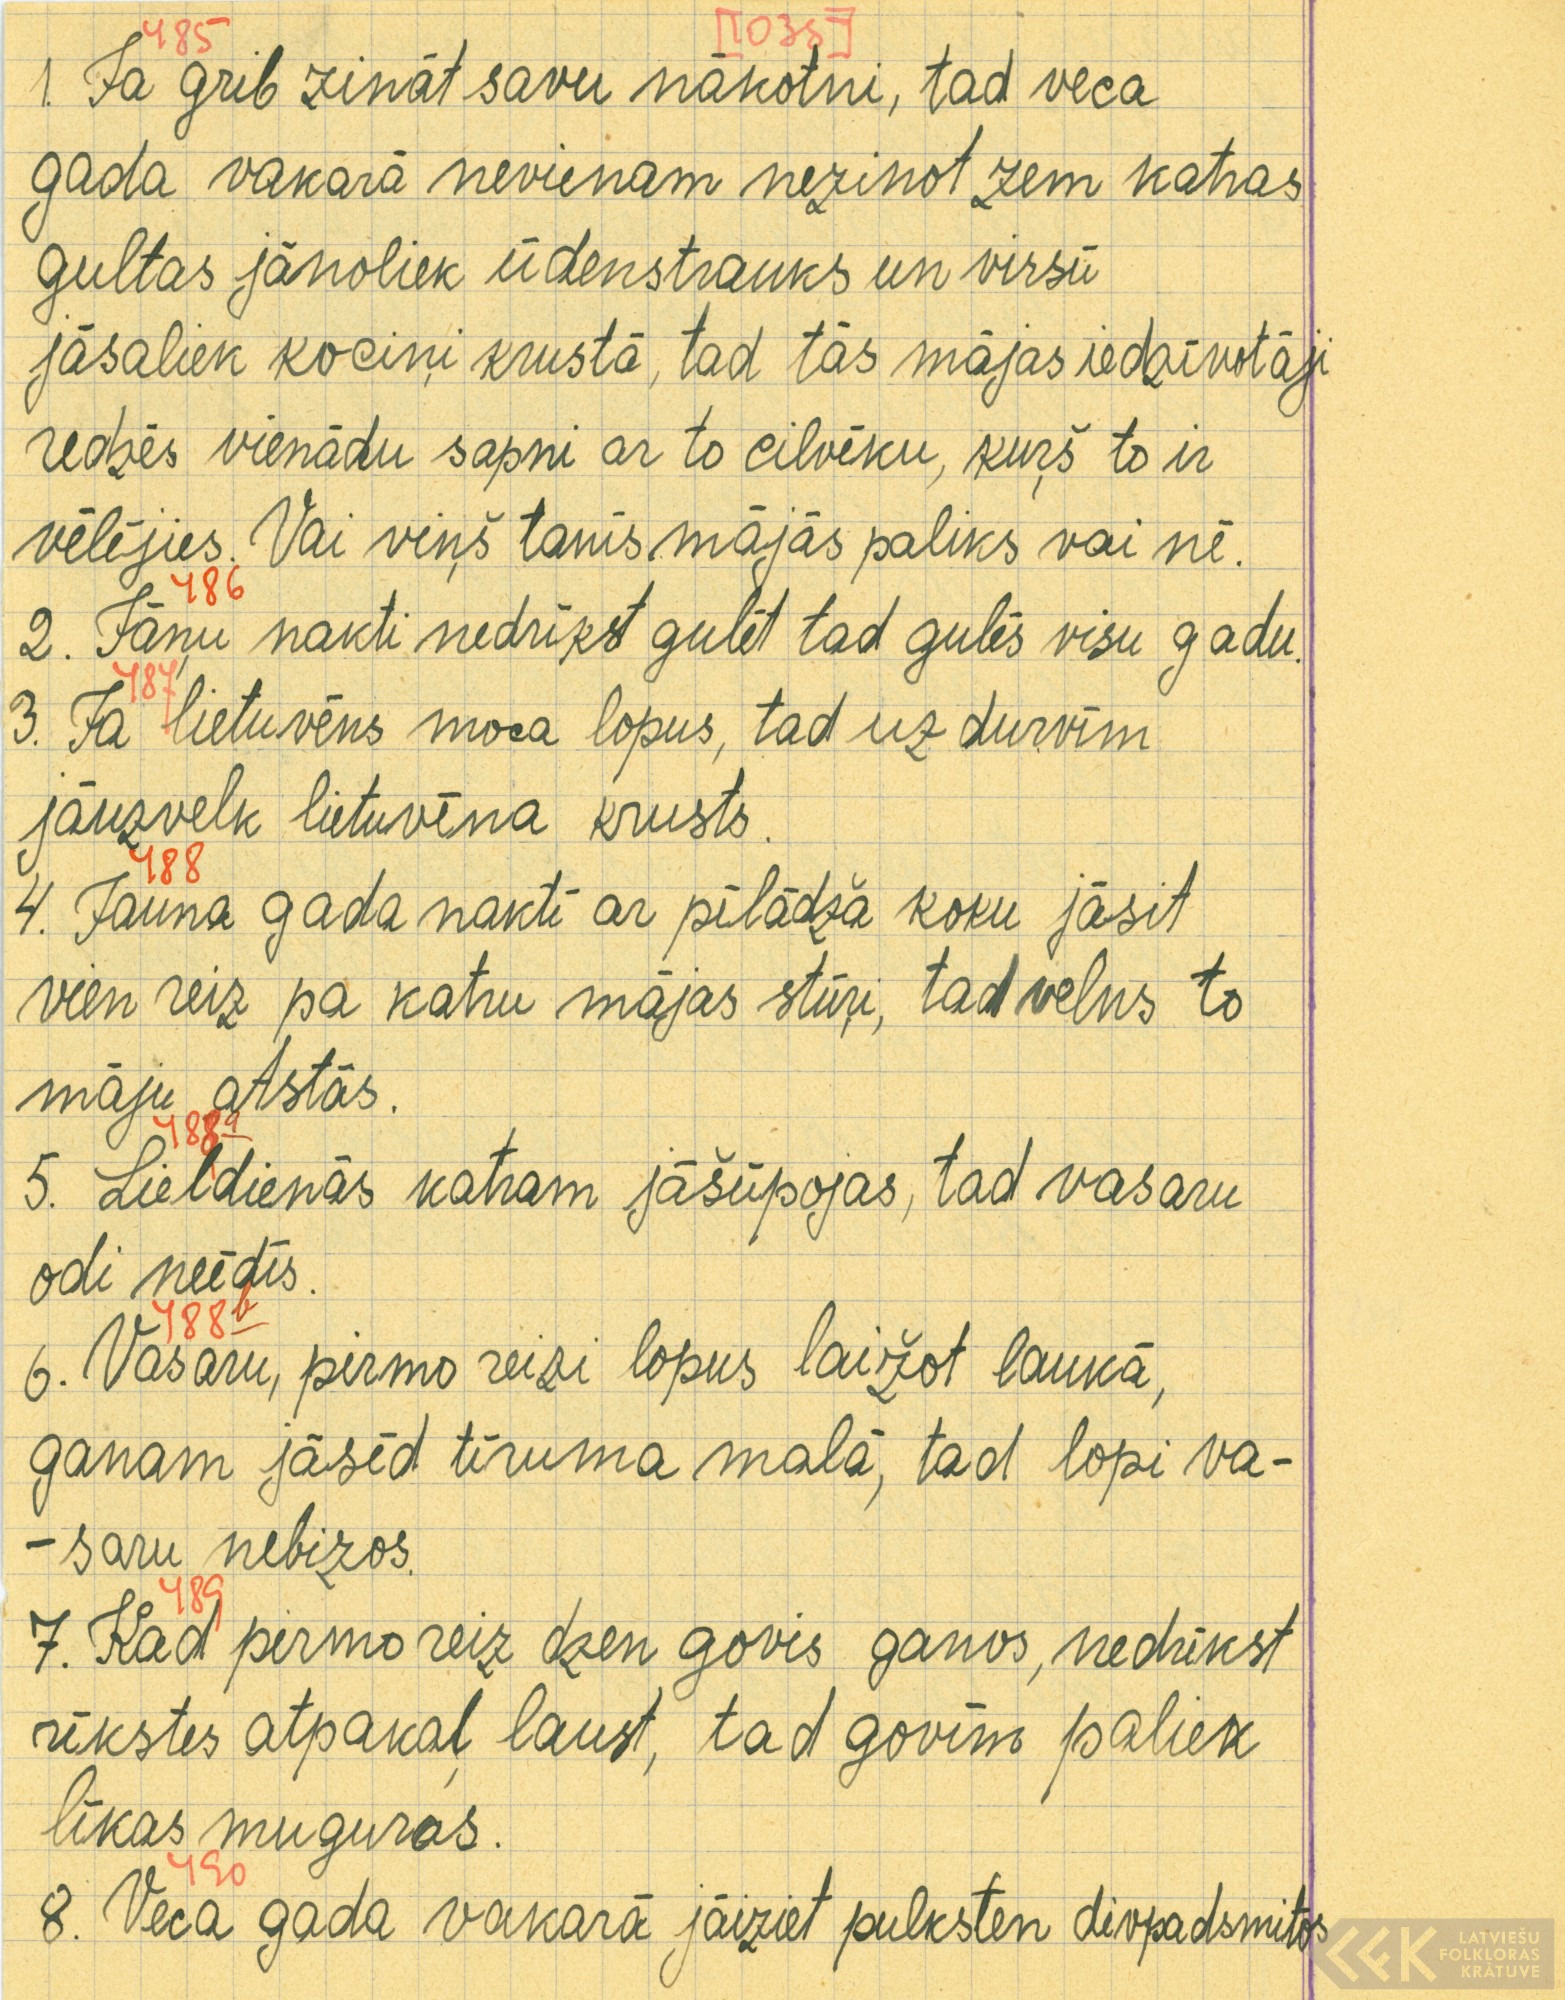 485 [1035]
1. Ja grib zināt savu nākotni, tad veca
gada vakarā nevienam nezinot zem katras
gultas jānoliek ūdenstrauks un virsū
jāsaliek kociņi krustā, tad tās mājas iedzīvotāji
redzēs vienādu sapni ar to cilvēku, kuŗš to ir
vēlējies. Vai viņš tanīs mājās paliks vai nē.
486
2. Jāņu nakti nedrīkst gulēt tad gulēs visu gadu.
487
3. Ja lietuvēns moca lopus, tad uz durvīm
jāuzvelk lietuvēna krusts.
488
4. Jauna gada naktī ar pīlādžā koku jāsit
vien reiz pa katru mājas stūŗi, tad velns to
māju atstās.
488a
5. Lieldienās katram jāšūpojas, tad vasaru
odi neēdīs.
488b
6. Vasaru, pirmo reizi lopus laižot laukā,
ganam jāsēd tīruma malā, tad lopi va-
-saru nebizos.
489
7. Kad pirmo reiz dzen govis ganos, nedrīkst
rīkstes atpakaļ laust, tad govīm paliek
līkas muguras.
490
8. Veca gada vakarā jāiziet pulksten divpadsmitos
LATVIEŠU
FOLKLORAS
KRĀTUVE